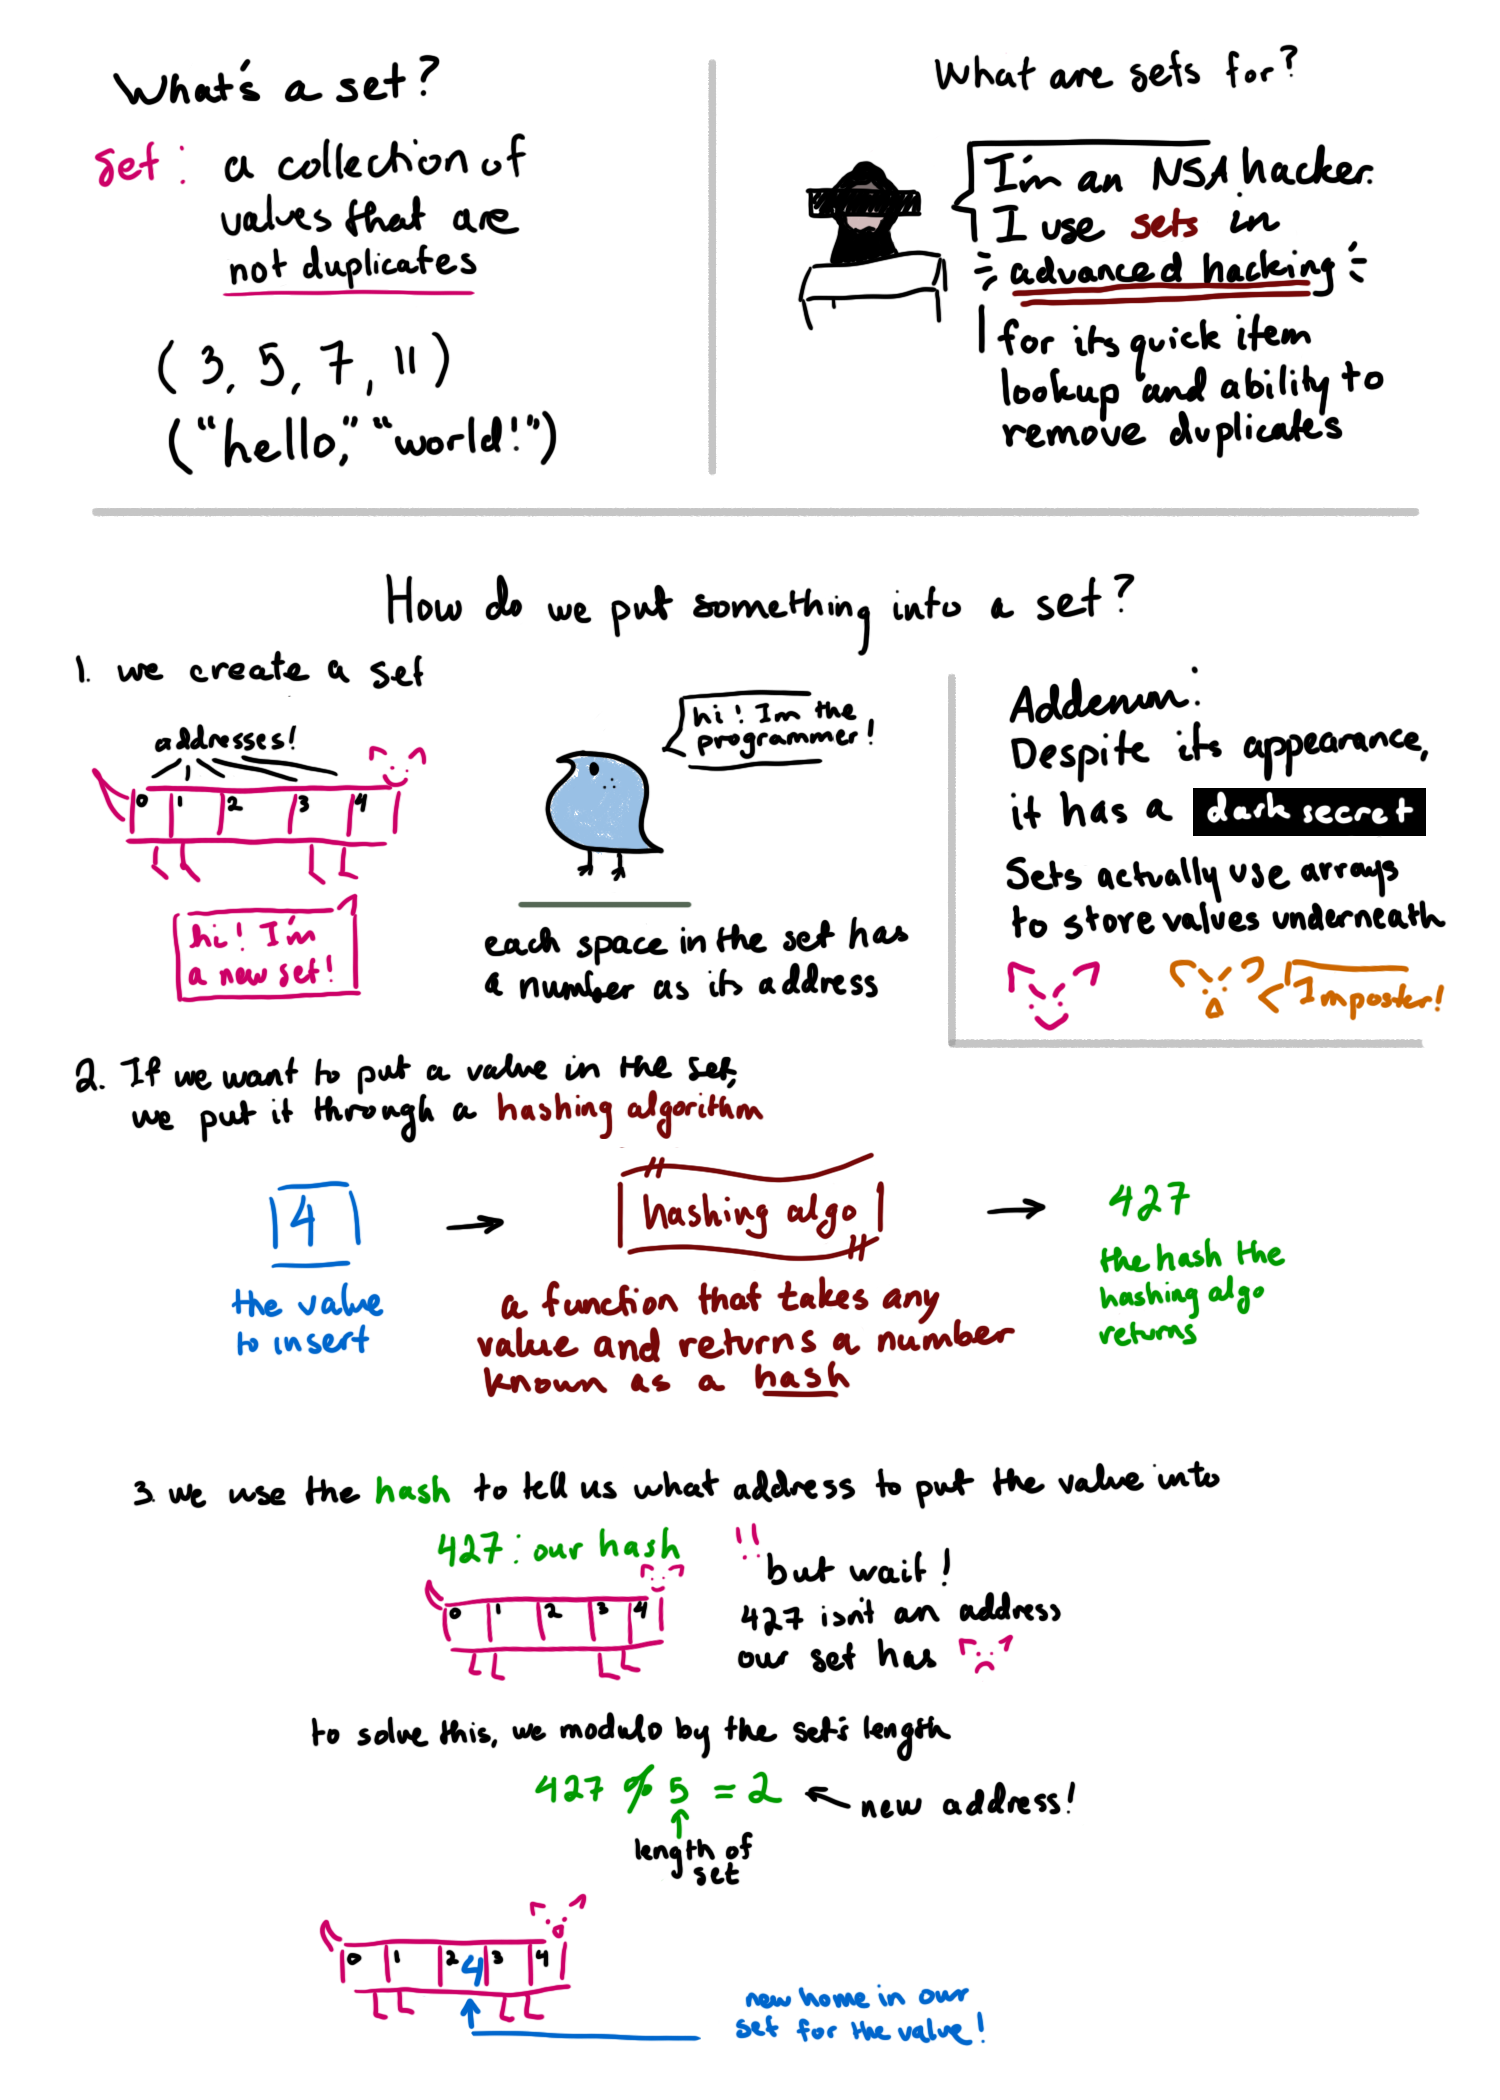 What's a set?
set: a collection of
values that are
not duplicates
(3, 5, 7, 11)
("hello," "world!")
What are sets for?
I'm an NSA hacker.
I use sets in
advanced hacking
for its quick item
lookup and ability to
remove duplicates
How do we put something into a set?
1. we create a set
addresses!
0 1 2 3 4
hi! I'm
a new set!
hi! Im the
programmer!
each space in the set has
a number as its address
Addenum:
Despite its appearance,
it has a dark secret
Sets actually use arrays
to store values underneath
Imposter!
2. If we want to put a value in the set,
we put it through a hashing algorithm
4
the value
to insert
hashing algo
a function that takes any
value and returns a number
known as a hash
427
the hash the
hashing algo
returns
3. we use the hash to tell us what address to put the value into
427: our hash
0 1 2 3 4
!!
but wait!
427 isn't an address
our set has
to solve this, we modulo by the set's length
427 % 5 = 2
new address!
length of
set
0 1 2 4 3 4
new home in our
set for the value!